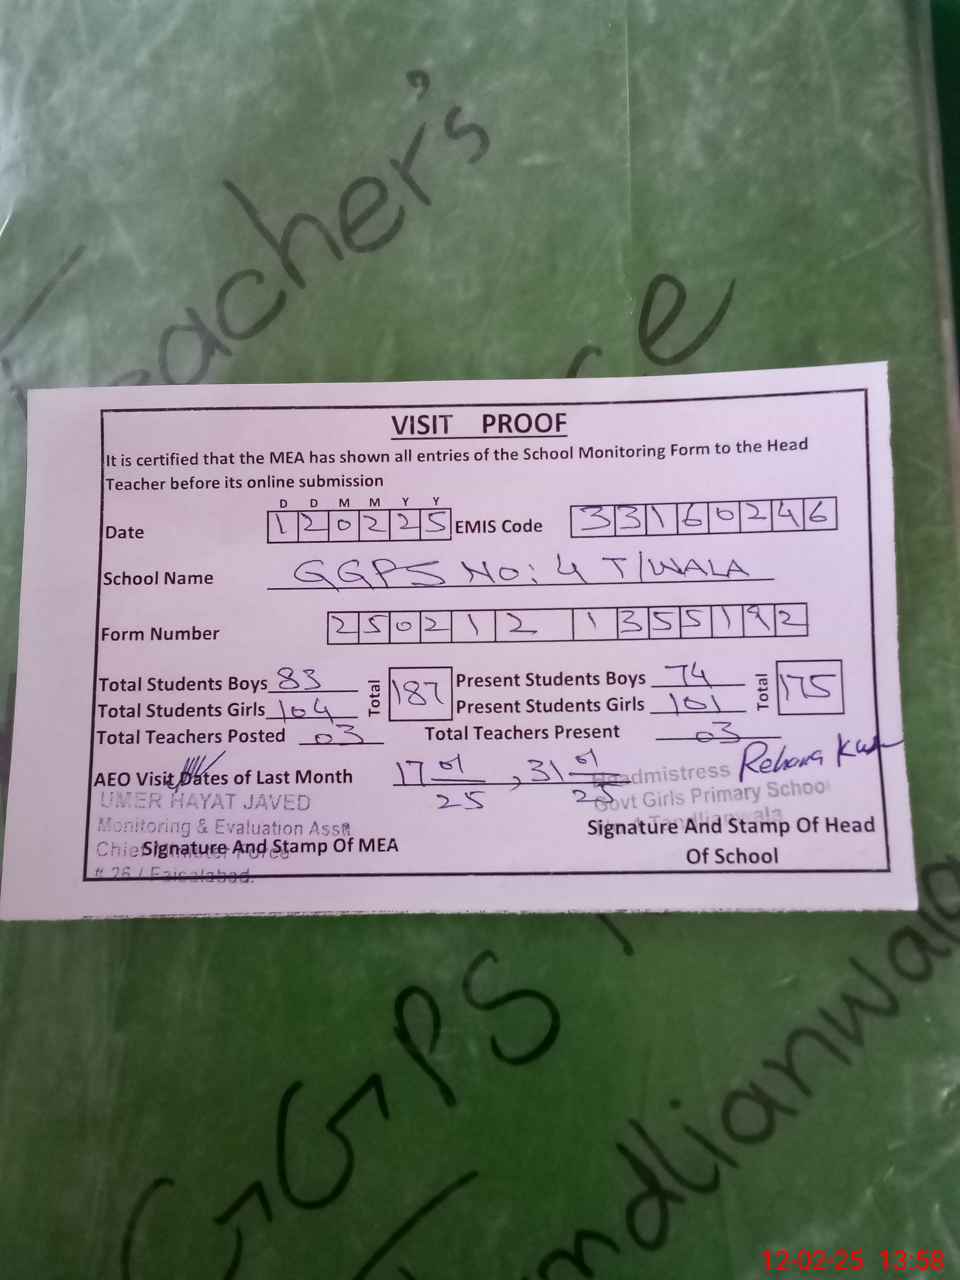 Teacher's
VISIT PROOF
It is certified that the MEA has shown all entries of the School Monitoring Form to the Head
Teacher before its online submission
D D M M Y Y
Date 120225 EMIS Code 33160246
School Name GGPS No: 4 T/WALA
Form Number 250212 1355192
Total Students Boys 83 Total 187 Present Students Boys 74 Total 175
Total Students Girls 104 Present Students Girls 101
Total Teachers Posted 03 Total Teachers Present 03
AEO Visit Dates of Last Month 17 01/25, 31 01/25
Headmistress Rehana
UMER HAYAT JAVED
Govt Girls Primary School
Monitoring & Evaluation Asst
Signature And Stamp Of MEA
Signature And Stamp Of Head
Of School
# 26 / Faisalabad.
GGPS
Tandlianwala
12-02-25 13:58